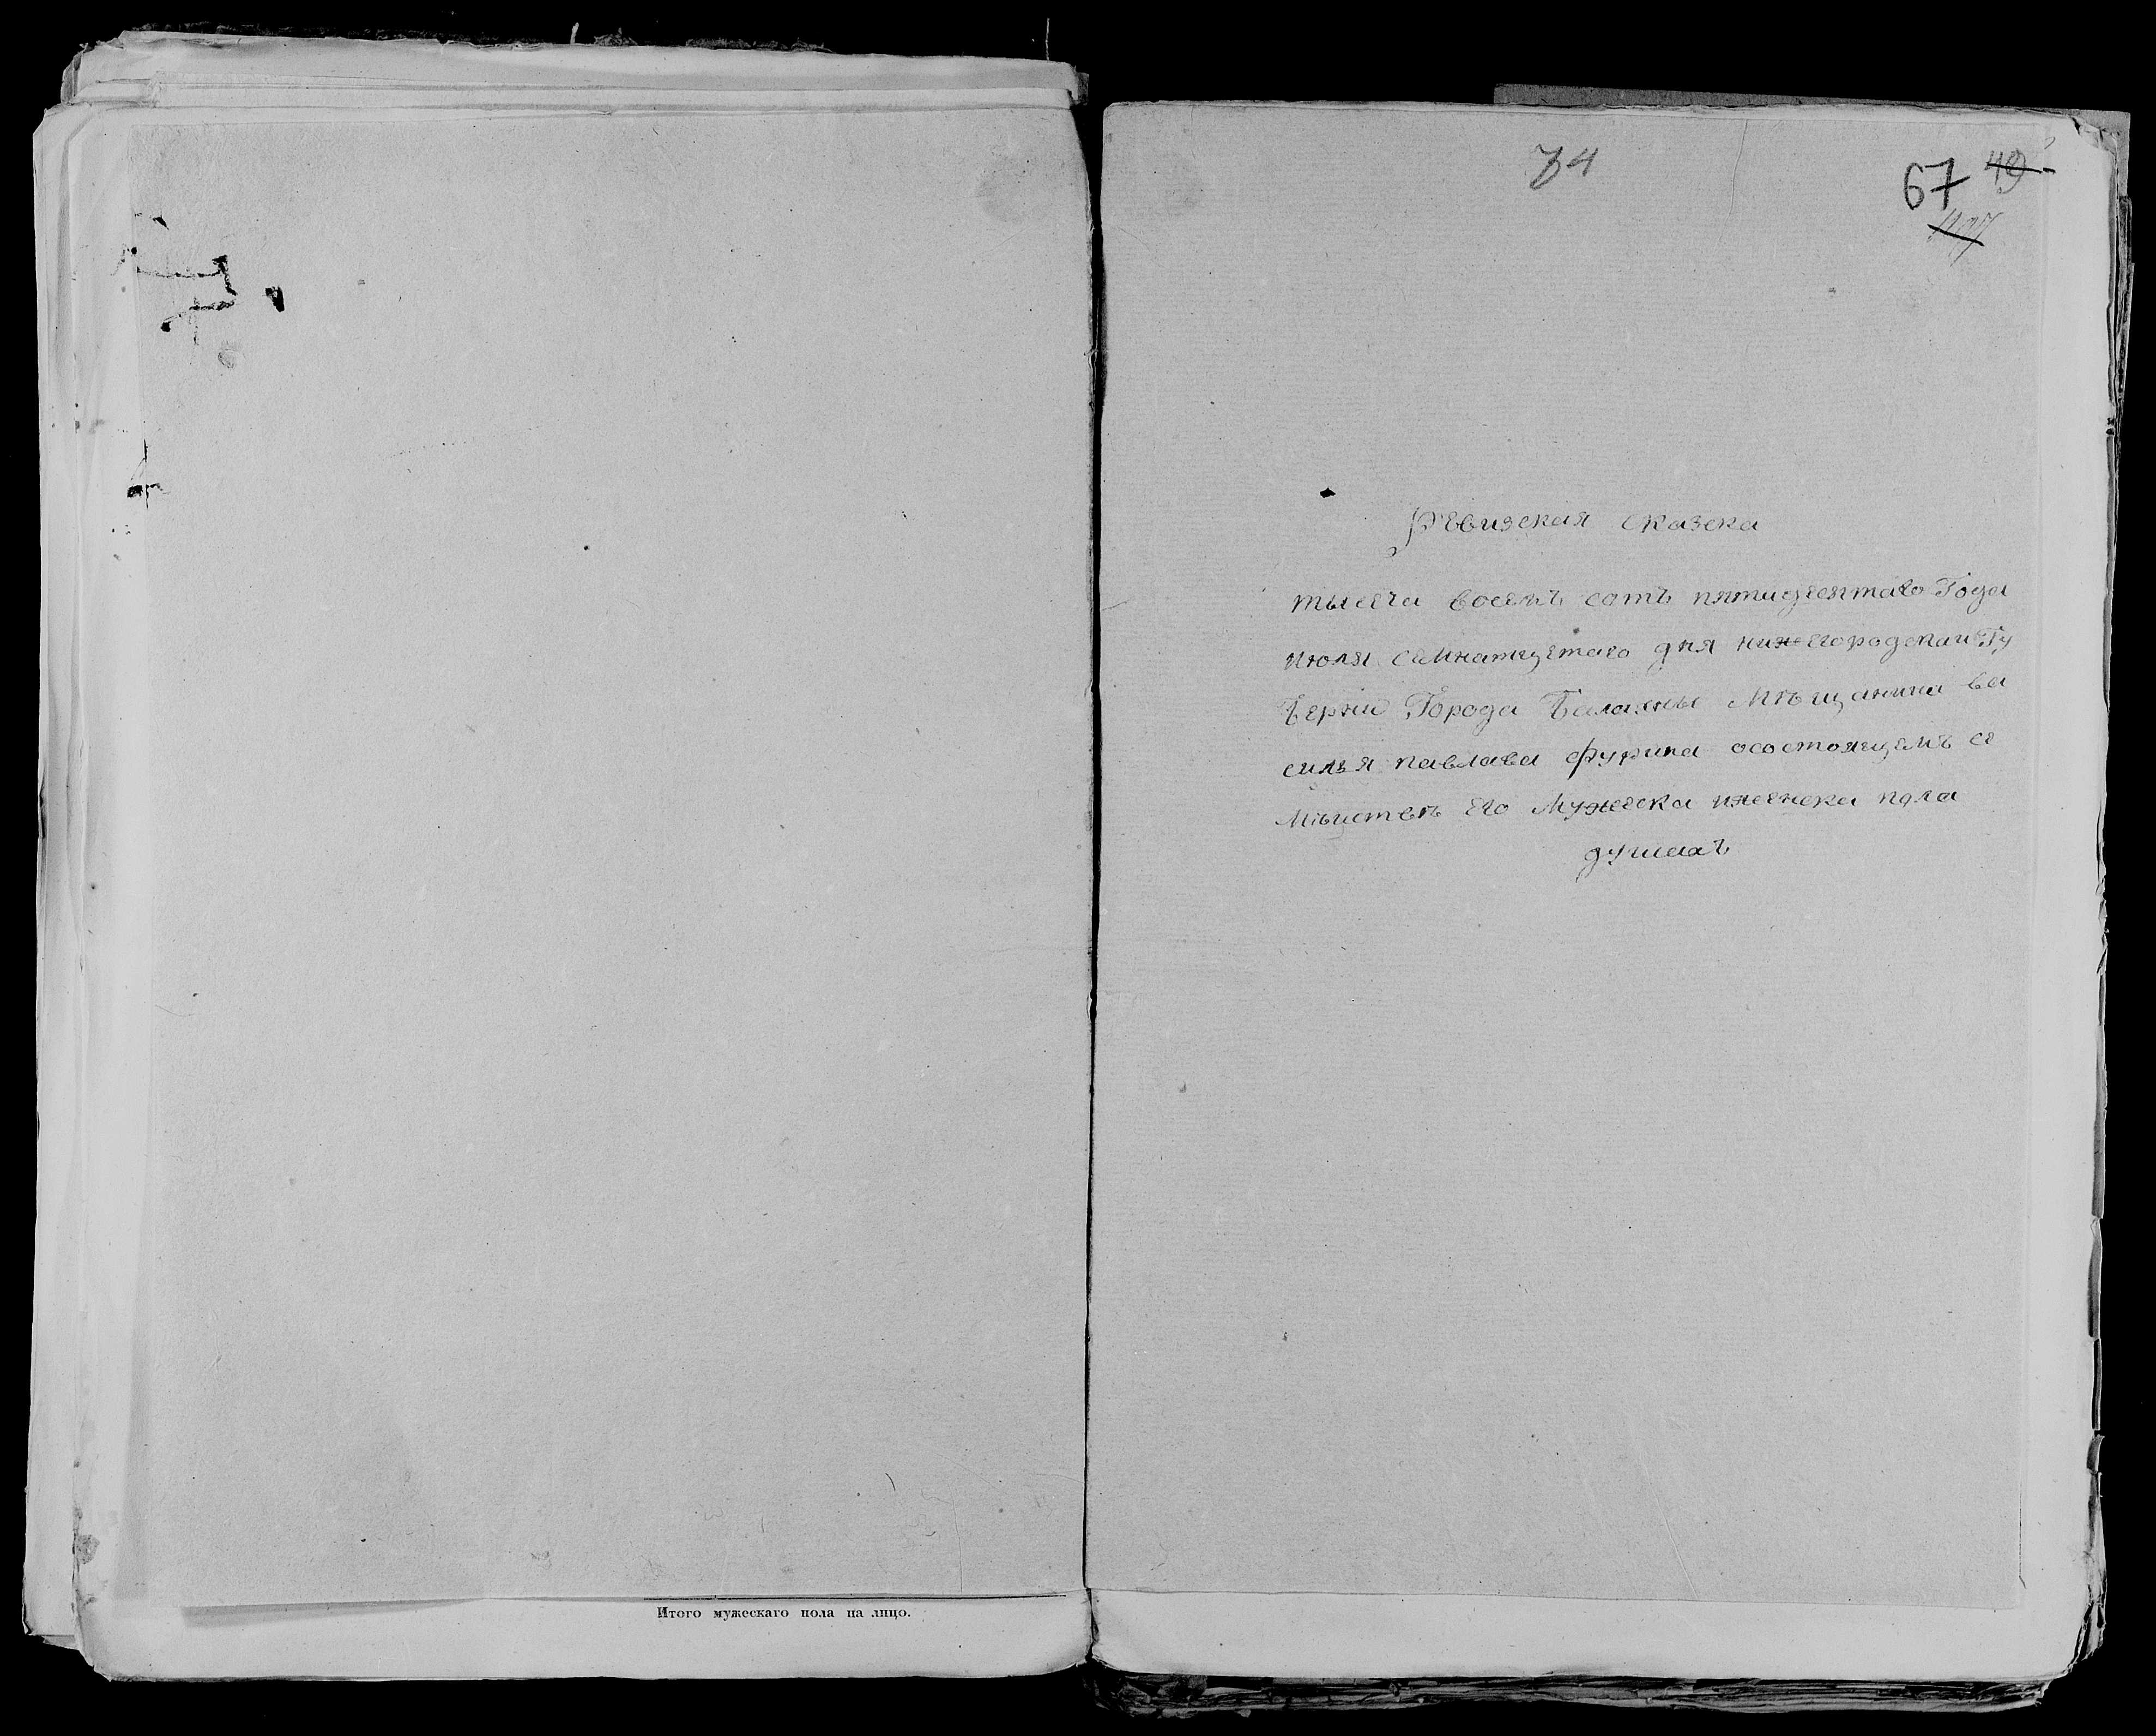 Итого мужескаго пола на лицо.
74
67 49
ревизская сказска
тысеча восемъ сотъ пятидесятаго Года
июля семнатцетаго дня нижегородскаи Гу
берnии Города Балахны Мѣщанина ва
силья павлава фурина осостоящемъ се
Мѣистве его Мужеска иженска пола
душахъ